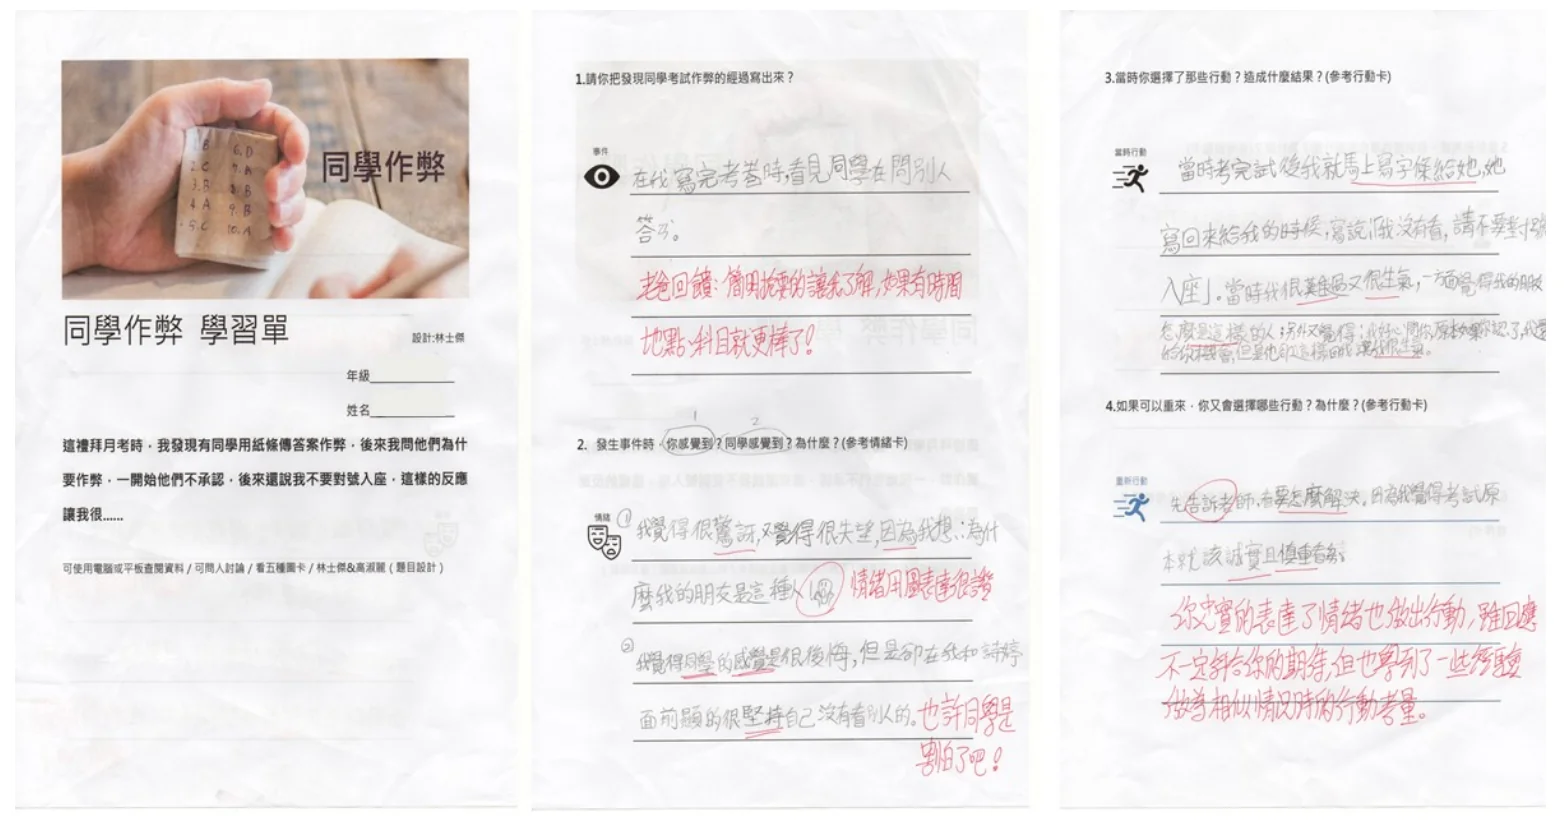 1. B
2. C
3. B
4. A
5. C
6. D
7. A
8. B
9. B
10. A
同學作弊
同學作弊 學習單
設計:林士傑
年級
姓名
這禮拜月考時，我發現有同學用紙條傳答案作弊，後來我問他們為什
要作弊，一開始他們不承認，後來還說我不要對號入座，這樣的反應
讓我很......
可使用電腦或平板查閱資料 / 可問人討論 / 看五種圖卡 / 林士傑&高淑麗 ( 題目設計 )
1.請你把發現同學考試作弊的經過寫出來？
事件
在我寫完考卷時,看見同學在問別人
答案。
老爸回饋:簡明扼要的讓我了解,如果有時間
地點、科目就更棒了!
1 2
2. 發生事件時，你感覺到？同學感覺到？為什麼？(參考情緒卡)
情緒
① 我覺得很驚訝,又覺得很失望,因為我想:為什
麼我的朋友是這種人 情緒用圖表達很讚
② 我覺得同學的感覺是很後悔,但是卻在我和詩婷
面前顯的很堅持自己沒有看別人的。也許同學是
害怕了吧!
3.當時你選擇了那些行動？造成什麼結果？(參考行動卡)
當時行動
當時考完試後我就馬上寫字條給她,她
寫回來給我的時候,寫說「我沒有看,請不要對號
入座」。當時我很難過又很生氣,一方面覺得我的朋友
怎麼是這樣的人;另外又覺得:我好心問你,原本如果你認了,我
給你機會,但是他卻這樣回我,讓我很生氣。
4.如果可以重來，你又會選擇哪些行動？為什麼？(參考行動卡)
重新行動
先告訴老師,看要怎麼解決。因為我覺得考試原
本就該誠實且慎重看待。
你忠實的表達了情緒也做出行動,雖回應
不一定符合你的期待,但也學到了一些經驗
做為相似情況時的行動考量。